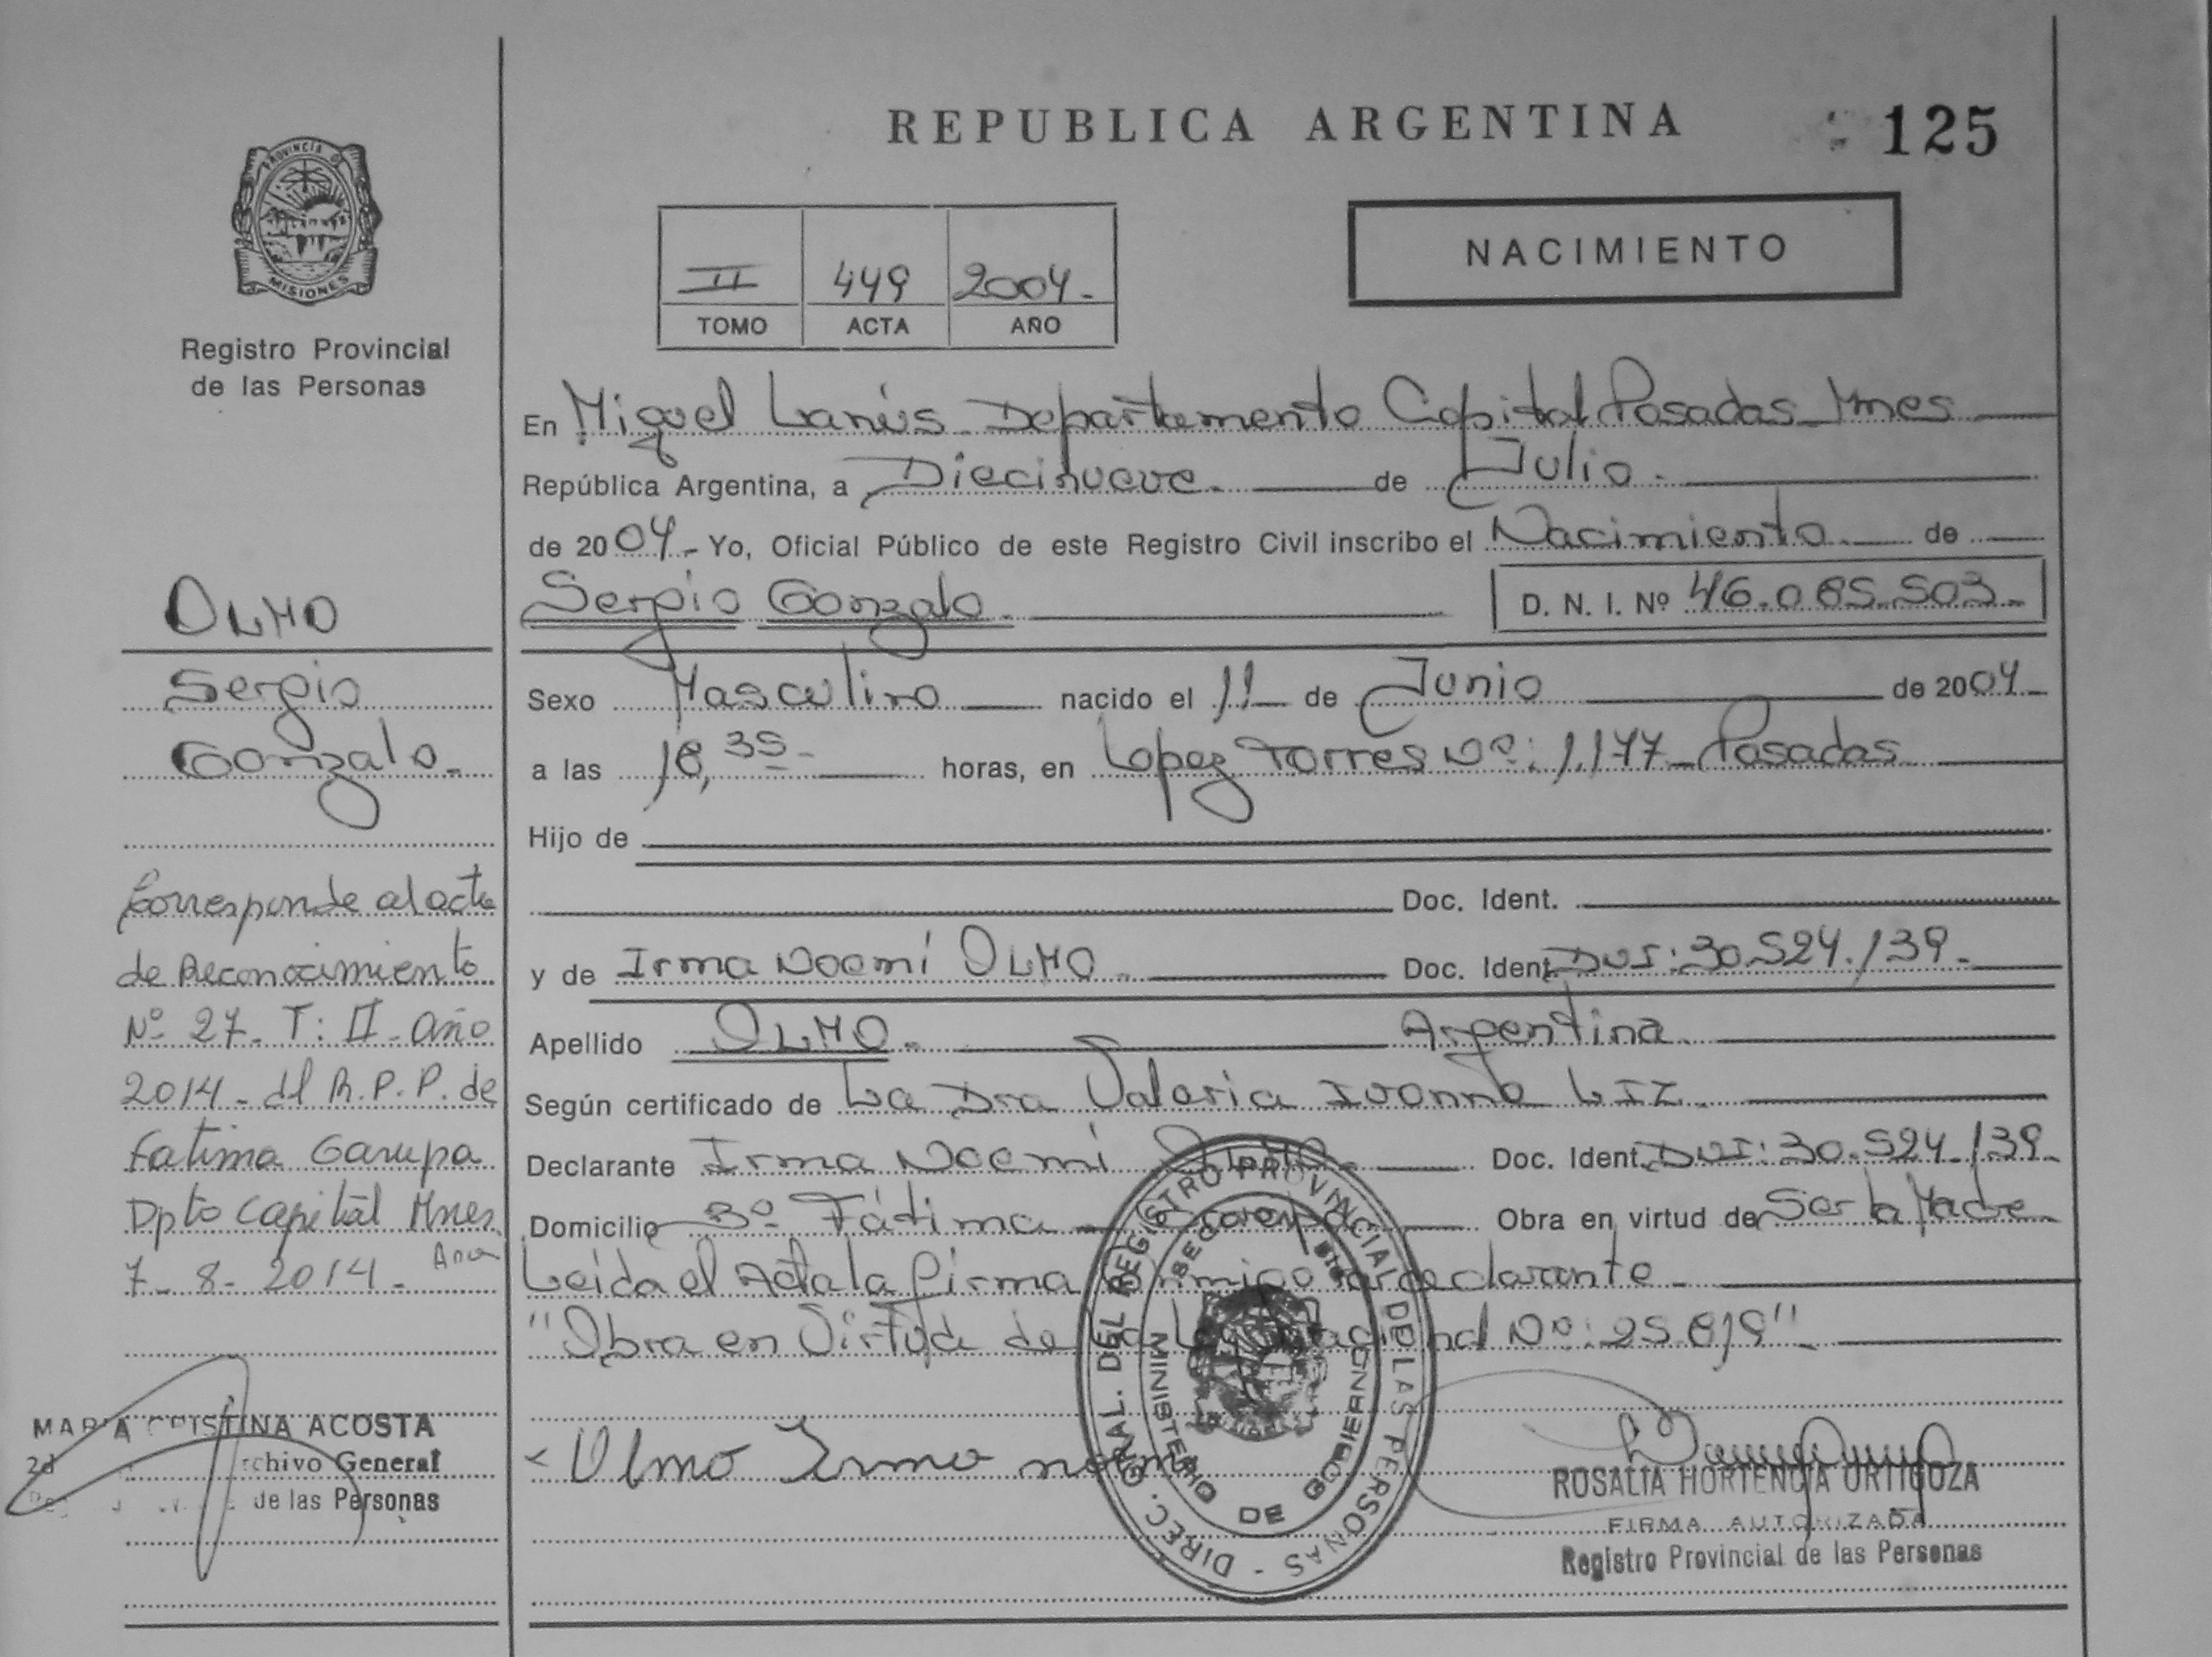 REPUBLICA ARGENTINA
125
PROVINCIA DE
MISIONES
Registro Provincial
de las Personas
II 449 2004.-
TOMO ACTA AÑO
NACIMIENTO
En Miguel Lanús - Departamento Capital Posadas - Mnes
República Argentina, a Diecinueve.- de Julio.-
de 2004.- Yo, Oficial Público de este Registro Civil inscribo el Nacimiento.- de
Sergio Gonzalo.- D. N. I. Nº 46.085.503.-
Sexo Masculino nacido el 11 de Junio de 2004.-
a las 18,35.- horas, en Lopez Torres Nº: 1.177 - Posadas
Hijo de
Doc. Ident.
y de Irma Noemí OLMO.- Doc. Ident. DNI: 30.524.139.-
Apellido OLMO.- Argentina.
Según certificado de La Dra Valeria Ivonne LIZ.
Declarante Irma Noemí OLMO.- Doc. Ident. DNI: 30.524.139.
Domicilio Bº Fátima - Garupá Obra en virtud de Ser la Madre
Leida el Acta la firma conmigo la declarante.-
"Obra en Virtud de la Ley Nacional Nº: 25.819"
Olmo Irma noemi
ROSALIA HORTENCIA ORTIGOZA
FIRMA AUTORIZADA
Registro Provincial de las Personas
DIREC. GRAL. DEL REGISTRO PROVINCIAL DE LAS PERSONAS -
MINISTERIO DE GOBIERNO
OLMO
Sergio
Gonzalo.-
Corresponde al acta
de Reconocimiento
Nº 27 - T: II - año
2014 - del R.P.P. de
Fatima Garupa
Dpto Capital Mnes
7 - 8 - 2014 -
MARIA CRISTINA ACOSTA
Archivo General
de las Personas